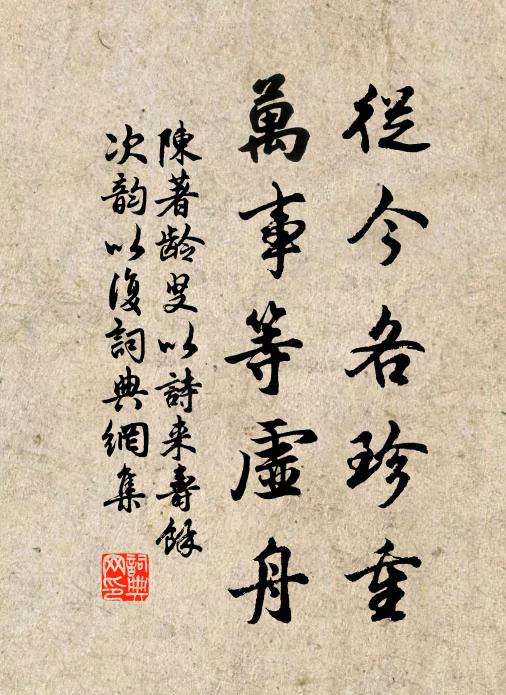 從今各珍重
萬事等虛舟
陳著龄叟以詩来壽馀
次韵以復詞典網集
詞典
网印